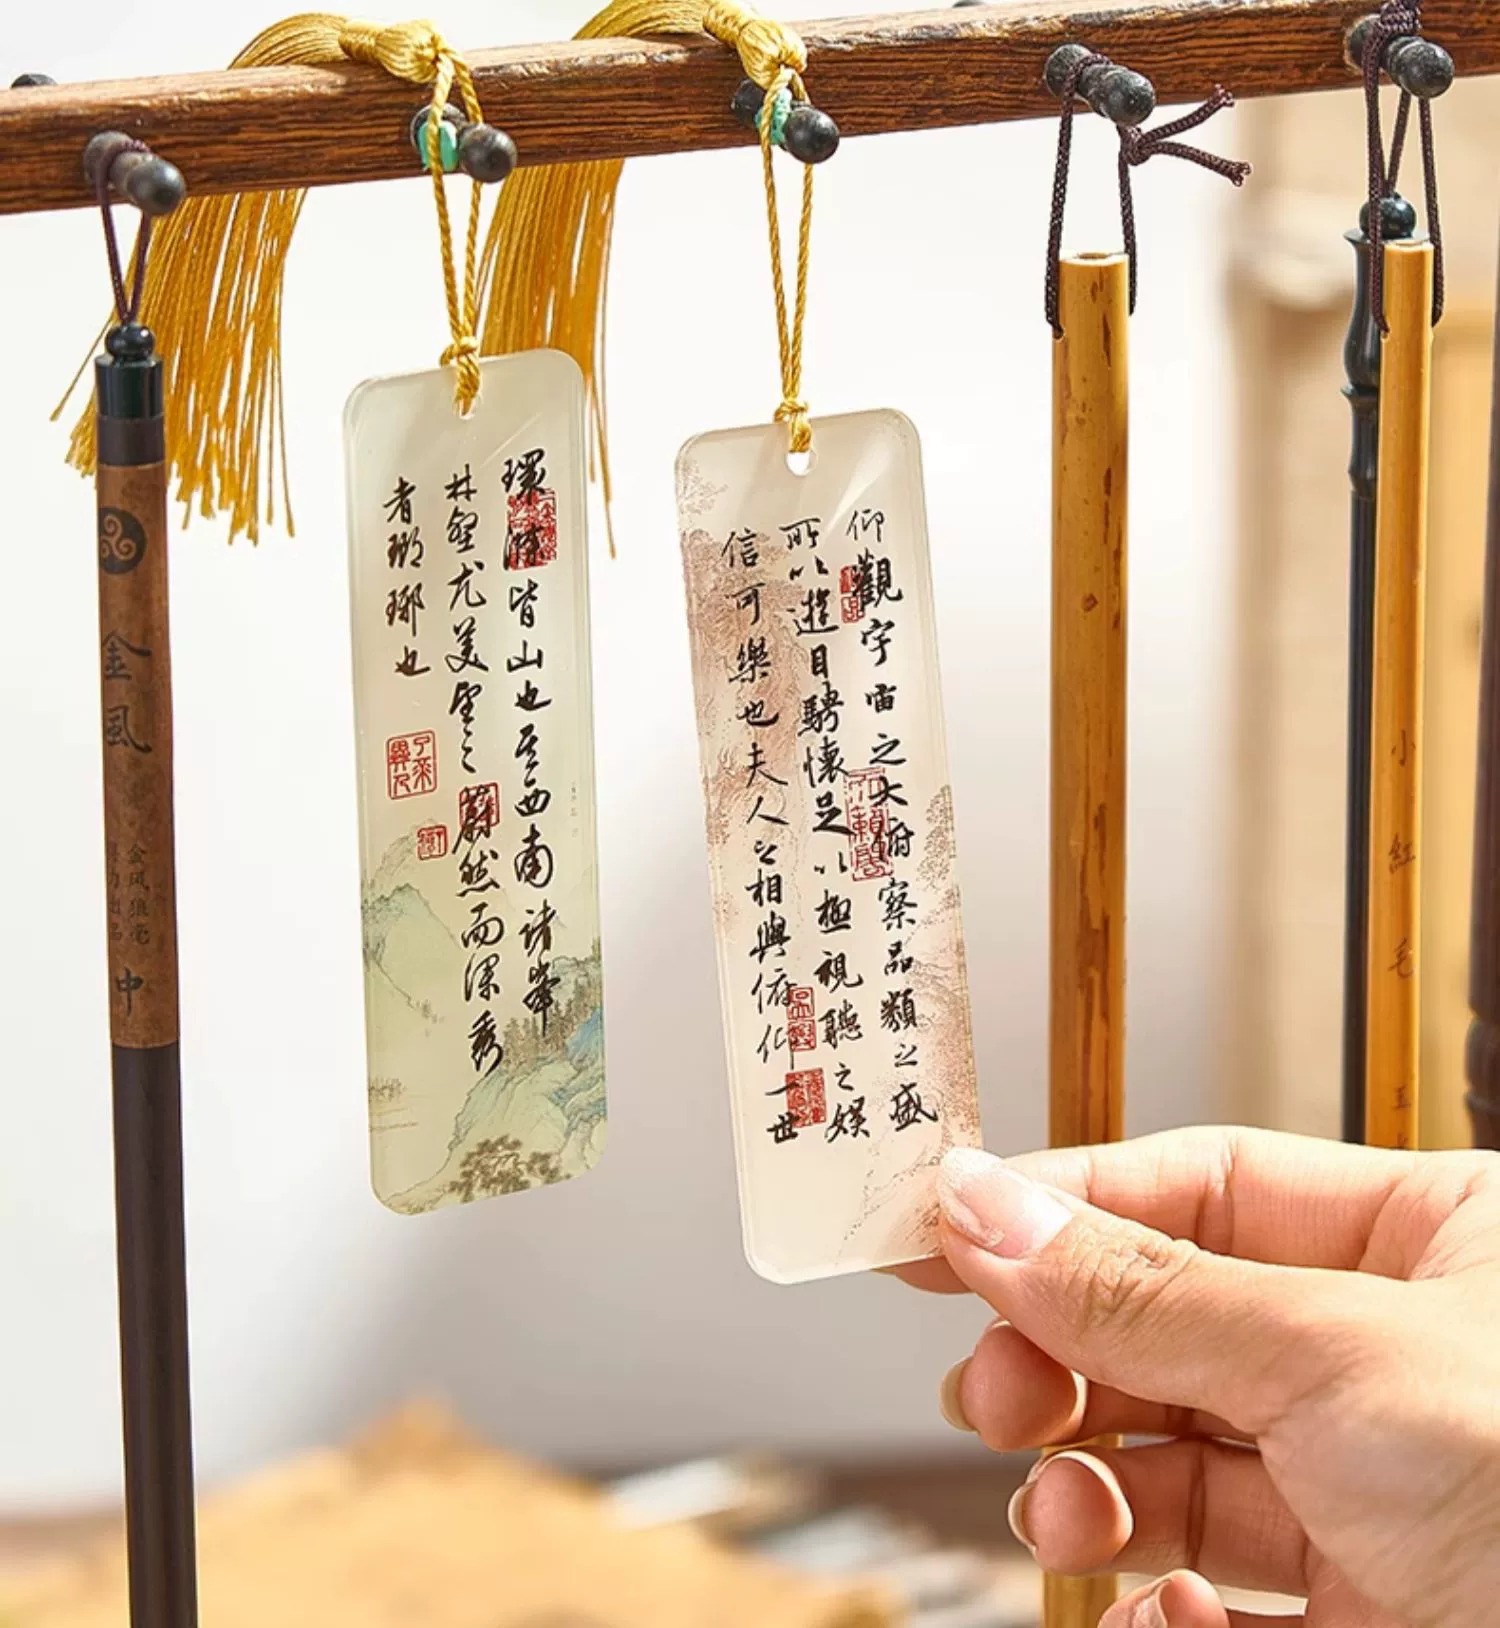 金風
金风狼毫
中
環滁皆山也其西南諸峯
林壑尤美望之蔚然而深秀
者瑯琊也
仰觀宇宙之大俯察品類之盛
所以遊目騁懷足以極視聽之娛
信可樂也夫人之相與俯仰一世
小紅毛